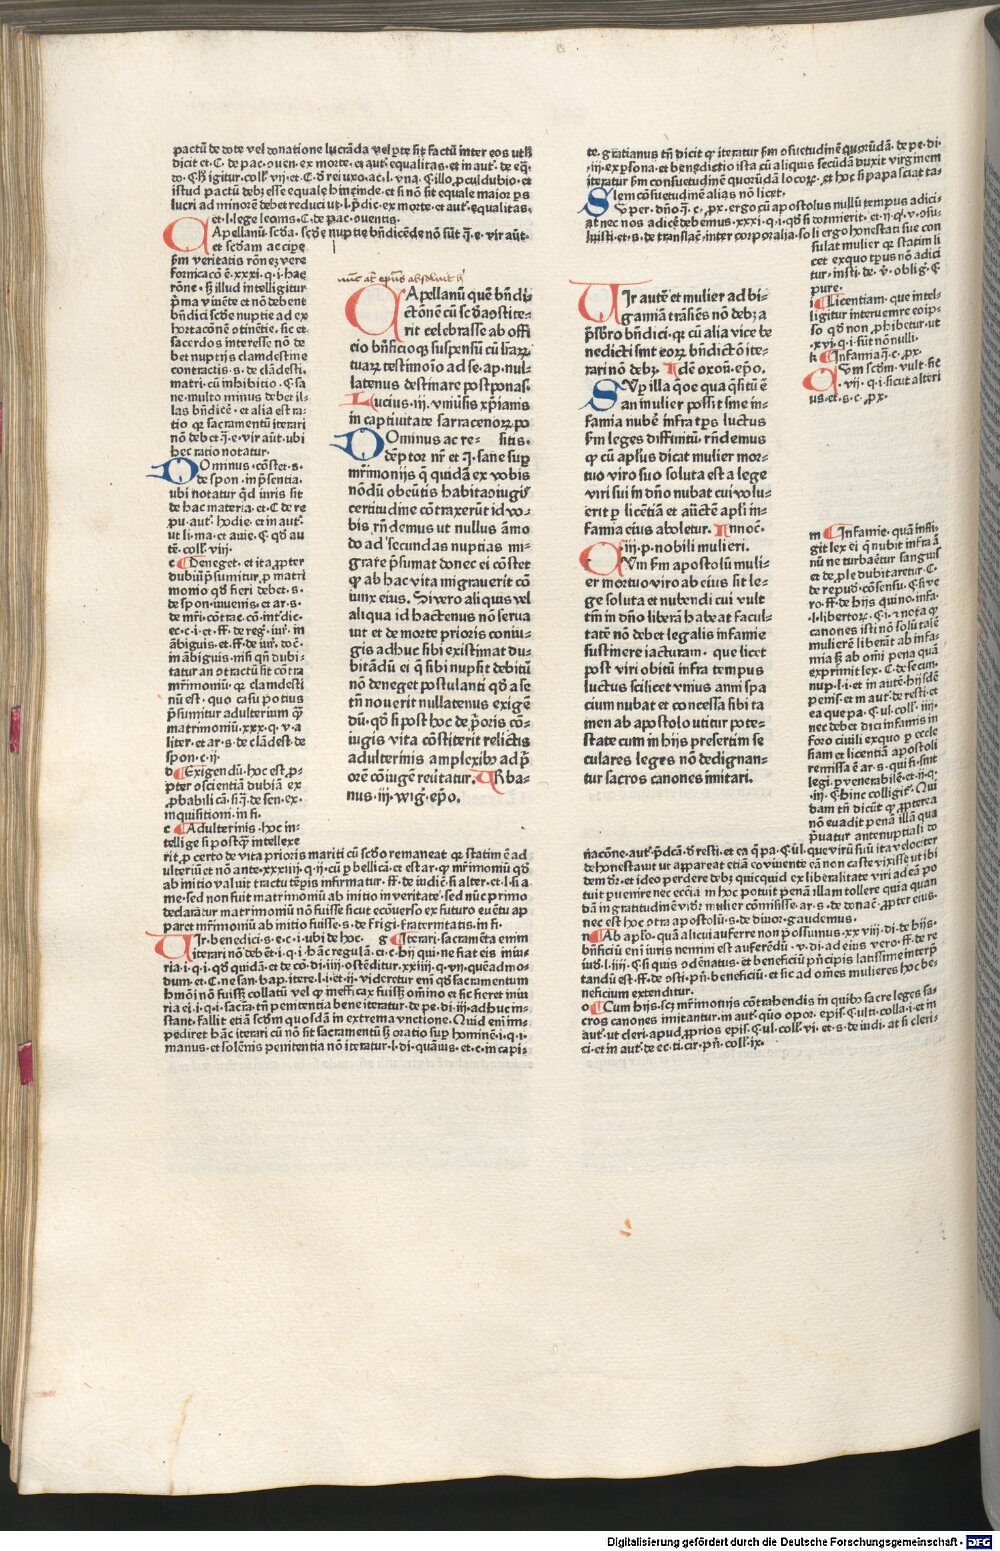 pactū de dote vel donatione lucrāda vel pte sit factū inter eos ut
dicit et. C. de pac. ouen. ex morte. et aut. equalitas. et in aut. de eq.
istud pactū debꝫ esse equale hincinde. et si nō sit equale maior ps
lucri ad minorē debet reduci ut. l. p dic. ex morte. et aut. equalitas.
et. l. lege leonis. C. de pac. ouentis.
CApellanū. scďa. scďe nuptie bn̄dicēde nō sūt q̄. e. vir aūt.
et scďam accipe
fm veritatis rōneꝫ vere
fornicacō ē. xxxi. q. i. hac
rōne. sꝫ illud intelligitur
pma viuēte et nō debent
bn̄dici scďe nuptie ad ex
hortacōnē otinētie. sic et
sacerdos interesse nō de
bet nuptijs clamdestine
contractis. s. de clādesti.
matri. cū inhibitio. C sa
ne. multo minus debet il-
las bn̄dicē. et alia est ra-
tio qꝛ sacramentū iterari
nō debet q̄. e. vir aūt. ubi
hec ratio notatur.
DOminus. cōstet. s.
de spon. in pn̄sentia.
ubi notatur qd iuris sit
de hac materia. et. C de re
pu. aut. hodie. et in aut.
ut li. ma. et auie. C. qd au
tē. coll. viij.
c C Deneget. et ita ꝓpter
dubiū p̄sumitur p matri
monio qd fieri debet. s.
de spon. iuuenis. et ar. s.
de mr̄i. cōtrac. cō. int̄dic.
ec. c. i. et. ff. de reg. iur. in
ābiguis. et. ff. de iur. do c.
in ābiguis. nisi qn̄ dubi-
tatur an otractū sit cōtra
mr̄imoniū. qꝛ clamdesti
nū est. quo casu potius
p̄sumitur adulteriū qꝫ
matrimoniū. xxx. q. v. a
liter. et ar. s. de clādest. de
spon. c. ij.
d C Exigendū. hoc est. ꝓ-
pter oscientiā dubiā ex
ꝓbabili cā. si q̄. de sen. ex.
inquisitioni. in fi.
e C Adulterinis. hoc in-
tellige si postqꝫ intellexe
rit ꝓ certo de vita prioris mariti cū scďo remaneat qꝛ statim ē ad
ulteriū et nō ante. xxxiiij. q. ij. cū p bellicā. et est ar. ꝙ mr̄imoniū qd
ab initio valuit tractu tēpis infirmatur. ff. de iudic. si alter. et. l. si a
me. sed non fuit matrimoniū ab initio in veritate. sed nūc primo
declaratur matrimoniū nō fuisse. sicut ecōuerso ex futuro euētu ap
paret mr̄imoniū ab initio fuisse. s. de frigi. fraternitatis. in fi.
VIr. benedici. s. e. c. i. ubi de hoc. g C Iterari. sacramēta enim
iterari nō debēt. i. q. i. hāc regulā. et. c. hij qui. ne fiat eis iniu-
ria. i. q. i. qd quidā. et de cō. di. iiij. ostēditur. xxiiij. q. vn. quēadmo-
dum. et. C. ne san. bap. itere. l. i. et. ij. videretur eni qd sacramentum
hmōi nō fuisꝫ collatū vel qꝫ inefficax fuisꝫ om̄ino et sic fieret iniu
ria ei. i. q. i. sacra. tn̄ penitentia bene iteratur. de pe. di. iij. adhuc in-
stant. fallit etiā scďm quosdā in extrema vnctione. Quid eni im-
pediret hāc iterari cū nō sit sacramentū sꝫ oratio suꝑ hominē. i. q. i.
manus. et solēnis penitentia nō iteratur. l. di. quāuis. et. c. in capi-
CApellanū quē bn̄di-
ctōnē cū scďa ostite-
rit celebrasse ab offi
cio bn̄ficioqꝫ suspensū cū lr̄aꝝ
tuaꝝ testimoīo ad se. ap. nul-
latenus destinare postponas.
Lucius. iij. vniūsis xp̄ianis
in captiuitate sarracenoꝝ po
DOminus ac re- sitis.
dēptor nr̄ et q̄. sane suꝑ
mr̄imonijs que quidā ex vobis
nōdū obeūtis habita oiugis
certitudine cōtraxerūt id vo-
bis rn̄demus ut nullus āmo
do ad secundas nuptias mi-
grare p̄sumat donec ei cōstet
ꝙ ab hac vita migrauerit cō
iunx eius. Si vero aliquis vel
aliqua id hactenus nō serua
uit et de morte prioris coniu-
gis adhuc sibi existimat du-
bitādū ei q̄ sibi nupsit debitū
nō deneget postulanti qd a se
tn̄ nouerit nullatenus exigē
dū. qd si post hoc de p̄oris cō-
iugis vita cōstiterit relictis
adulterinis amplexibꝫ ad p̄-
orē cōiugē reutatur. Urba-
nus. iij. wig. ep̄o.
te. gratianus tn̄ dicit ꝙ iteratur fm osuetudinē quorūdā. de pe. di.
iij. ex ꝑsona. et benedictio ista cū aliquis secūdā duxit virginem
iteratur fm consuetudinē quorūdā locoꝝ. et hoc si papa sciat ta-
lem cōsuetudinē alias nō licet.
SVper. dn̄o. q̄. c. ꝓx. ergo cū apostolus nullū tempus adici-
at nec nos adicē debemus. xxxi. q. i. qd si dormierit. et. ij. q. v. osu-
luisti. et. s. de translac̄. inter corporalia. soli ergo honestati fue con
sulat mulier qꝛ statim li
cet exquo tpus nō adici
tur. insti. de v. oblig. C
pure.
i C Licentiam. que intel-
ligitur interuenire eoip-
so qd non ꝓhibetur. ut
xvi. q. i. sūt nōnulli.
k C Infamia. q̄. c. ꝓx.
CVm scďm. vult. sic
vij. q. i. sicut alteri
us. et. s. c. ꝓx.
VIr autē et mulier ad bi-
gamiā trāsiēs nō debꝫ a
p̄sbro bn̄dici. qꝛ cū alia vice be
nedicti sint eoꝝ bn̄dictō ite-
rari nō debꝫ. Idē oxon̄. ep̄o.
SVꝑ illa q̄oe qua q̄situ ē
an mulier possit sine in-
famia nubē infra tps luctus
fm leges diffinitū. rn̄demus
ꝙ cū apl̄us dicat mulier mor-
tuo viro suo soluta est a lege
viri sui in dn̄o nubat cui volu-
erit p licētiā et auctē apl̄i in-
famia eius aboletur. Innoc̄.
iij. p. nobili mulieri.
CVm fm apostolū muli-
er mortuo viro ab eius sit le-
ge soluta et nubendi cui vult
tm in dn̄o liberā habeat facul-
tatē nō debet legalis infamie
sustinere iacturam. que licet
post viri obitū infra tempus
luctus scilicet vnius anni spa
cium nubat et concessa sibi ta
men ab apostolo utitur pote-
state cum in hijs presertim se
culares leges nō dedignan-
tur sacros canones imitari.
m C Infamie. quā infli-
git lex ei q̄ nubit infra ā
nū ne turbaētur sanguis
et de ꝓle dubitaretur. C.
canones isti nō solū talē
mulierē liberāt ab infa-
mia sꝫ ab om̄i pena quā
exprimit lex. C. de secun.
nup. l. i. et in autē. hijsdē
penis. et in aut. de resti. et
ea que pa. C ul. coll. iiij.
nec debet dici infamis in
foro ciuili exquo ꝑ eccle
siam et licentiā apostoli
remissa ē ar. s. qui fi. sint
legi. ꝑ venerabilē. et. ij. q.
iij. C hinc colligit. Qui
dam tn̄ dicūt ꝙ ꝓpterea
nō euadit penā illā qua
p̄uatur ante nuptiali do
nacōne. aut. p̄dcā. d resti. et ea q̄ pa. C ul. que virū suū ita v̄ docter
dehonestauit ut appareat etiā eo viuente cā non caste vixisse ut ibi
dem dr̄. et ideo perdere debꝫ quicquid ex liberalitate viri ad eā po
tuit puenire nec eccīa in hoc potuit penā illam tollere quia quan
dā ingratitudinē vidr̄ mulier cōmisisse. ar. s. de donac̄. ꝓpter eius.
nec est hoc otra apostolū. s. de diuor. gaudemus.
n C Ab apl̄o. quā alicui auferre non possumus. xxviij. di. de hijs.
bn̄ficiū eni iuris nemini est auferēdū. v. di. ad eius vero. ff. de re
iud. l. iiij. C si quis odēnatus. et beneficiū p̄ncipis latissime interp̄
tandū est. ff. de osti. pn̄. beneficiū. et sic ad om̄es mulieres hoc be-
neficium extenditur.
o C Cum hijs. scꝫ mr̄imonijs cōtrahendis in quibꝫ sacre leges sa-
cros canones imitantur. in aut. quō opor. epis. C ulti. colla. i. et in
aut. ut cleri. apud ꝓprios epis. C ul. coll. vi. et. s. de iudi. at si cleri-
ci. et in aut. de ec. ti. cir. pn̄. coll. ix.
Digitalisierung gefördert durch die Deutsche Forschungsgemeinschaft - DFG